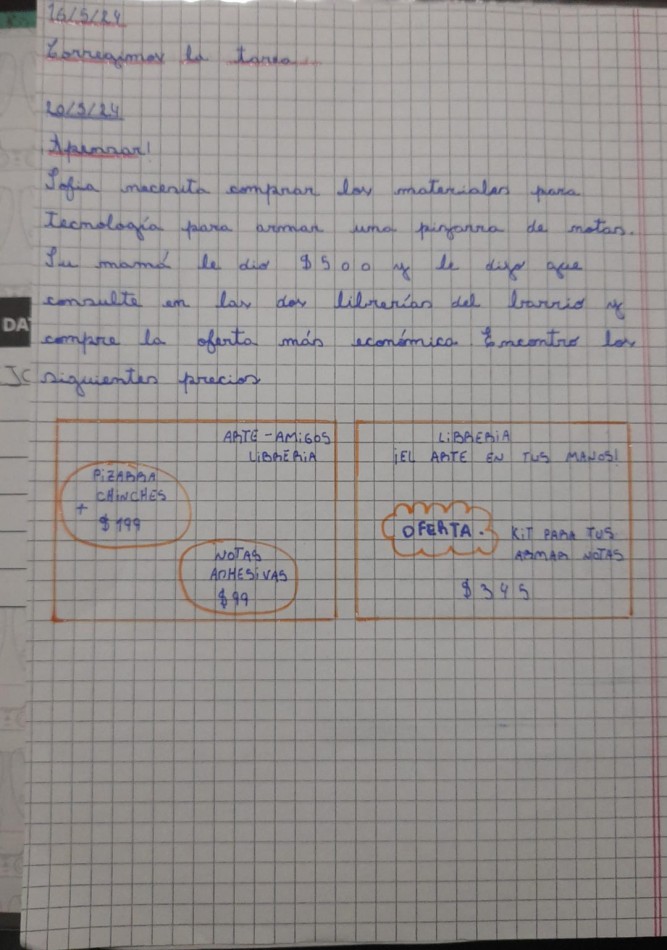 16/5/24
Corregimos la tarea
20/5/24
A pensar!
Sofia necesita comprar los materiales para
tecnología para armar una pizarra de notas.
Su mamá le dio $500 y le dijo que
consulte en las dos librerías del barrio y
compre la oferta más económica. Encontro los
siguientes precios
ARTE-AMIGOS
LIBRERIA
PIZARRA
CHINCHES
+
$199
NOTAS
ADHESIVAS
$99
LIBRERIA
¡EL ARTE EN TUS MANOS!
OFERTA.
KIT PARA TUS
ARMAR NOTAS
$345
DA
JC